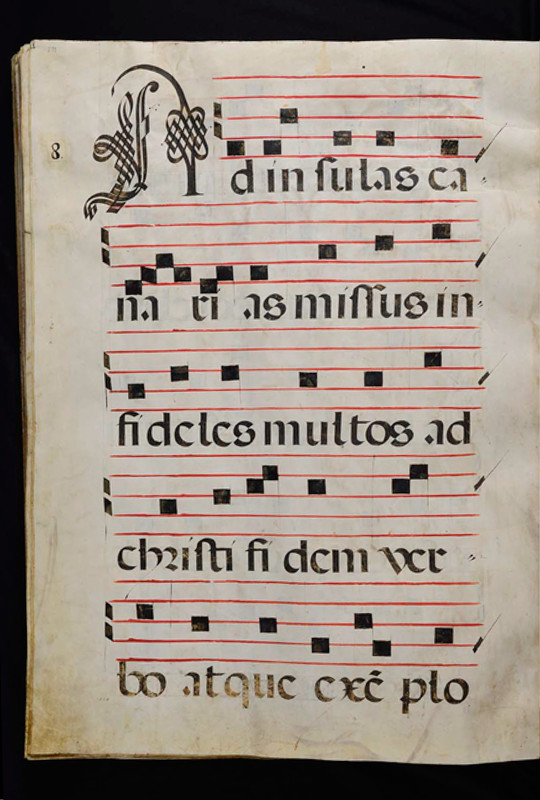 8.
Ad in sulas ca
na ri as missus in
fi deles multos ad
christi fi dem ver
bo atque exẽ plo